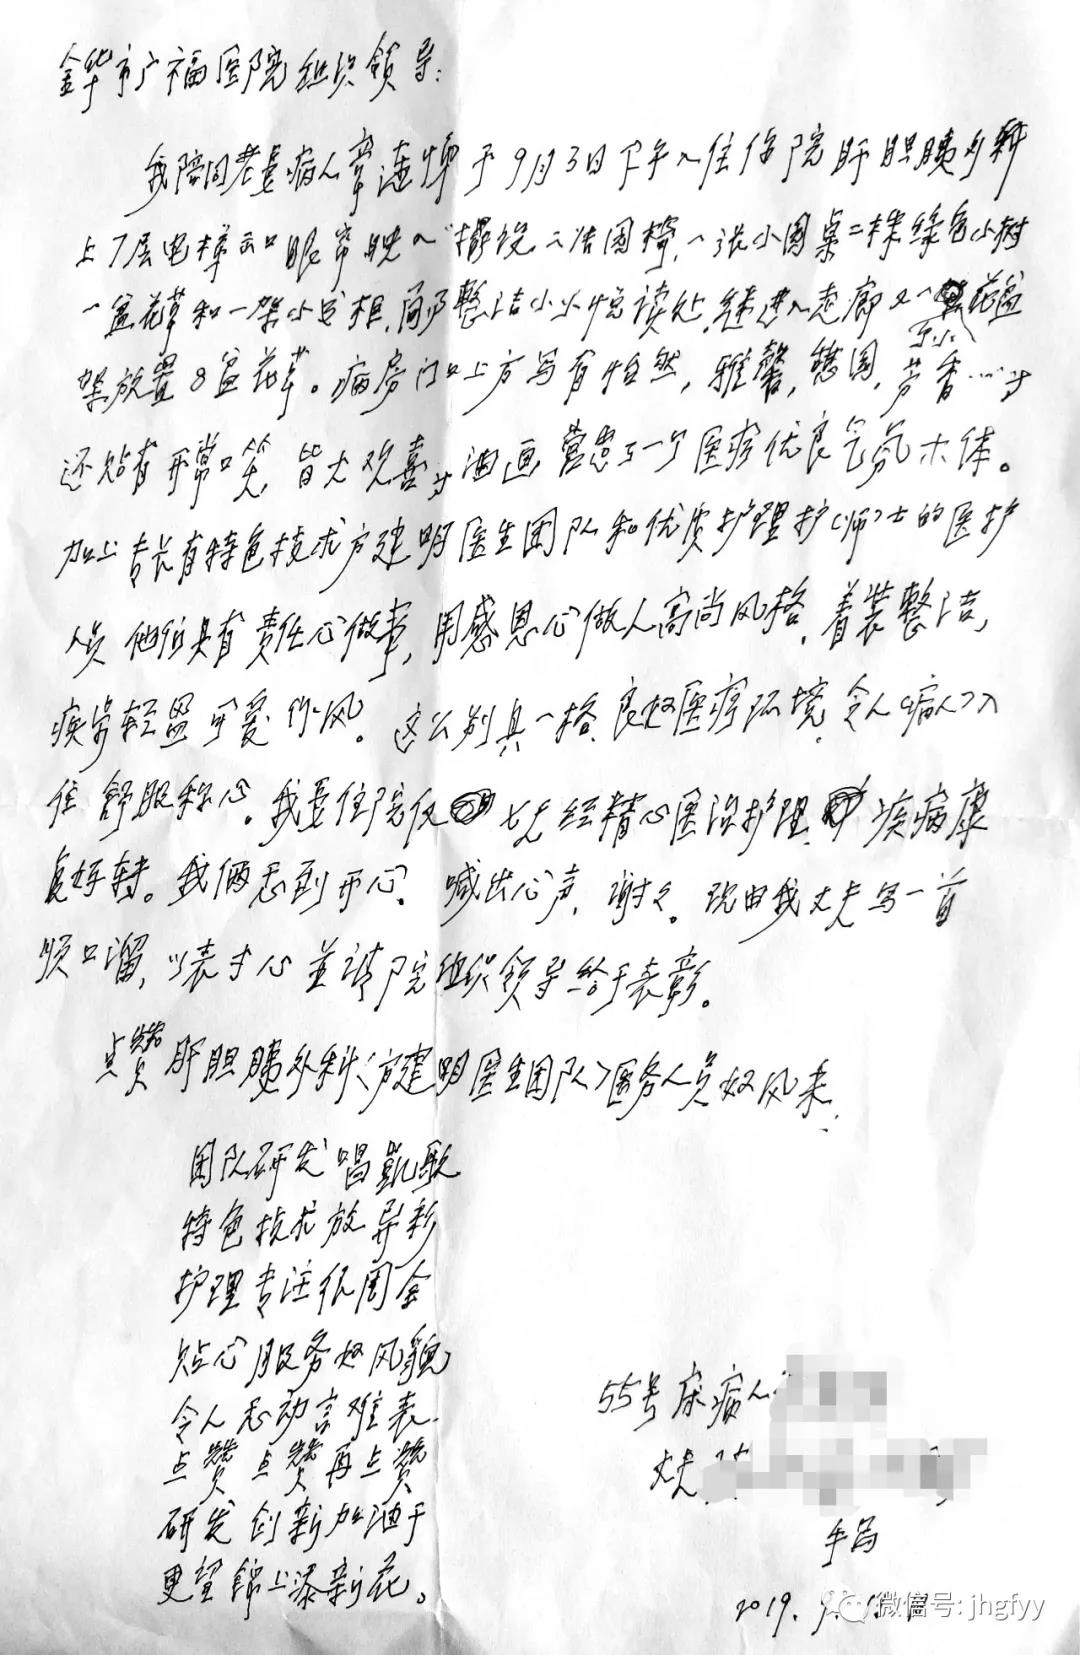 金华市广福医院组织领导:
我陪同老妻病人章莲娣于9月3日下午入住你院肝胆胰外科
上7层电梯出口眼帘映入摆设二洁圆椅,一张小圆桌二株绿色小树
一盆花草和一架小书柜,简阅整洁小小悦读处,继进入走廊又一花盆
架放置8盆花草。病房门口上方写有怡然,雅馨,德园,芳香……
还贴有开常口笑,皆大欢喜油画,营造了一个医疗优良气氛木体。
加上专长有特色技术方建明医生团队和优质护理护(师)士的医护
人员他们具有责任心做事,用感恩心做人高尚风格,着装整洁,
疾步轻盈可爱作风。这么别具一格,良好医疗环境,令人(病人)入
住舒服称心。我妻住院仅七天经精心医治护理,疾病康
复好转。我俩感到开心,喊出心声,谢谢。现由我丈夫写一首
顺口溜,以表寸心並请院组织领导给于表彰。
点赞肝胆胰外科(方建明医生团队)医务人员好风来:
团队研发唱凯歌
特色技术放异彩
护理专注很周全
贴心服务好风貌
令人感动言难表
点赞点赞再点赞
研发创新加油干
更望锦上添新花。
55号床病人
丈夫
手写
2019.9.
微信号: jhgfyy